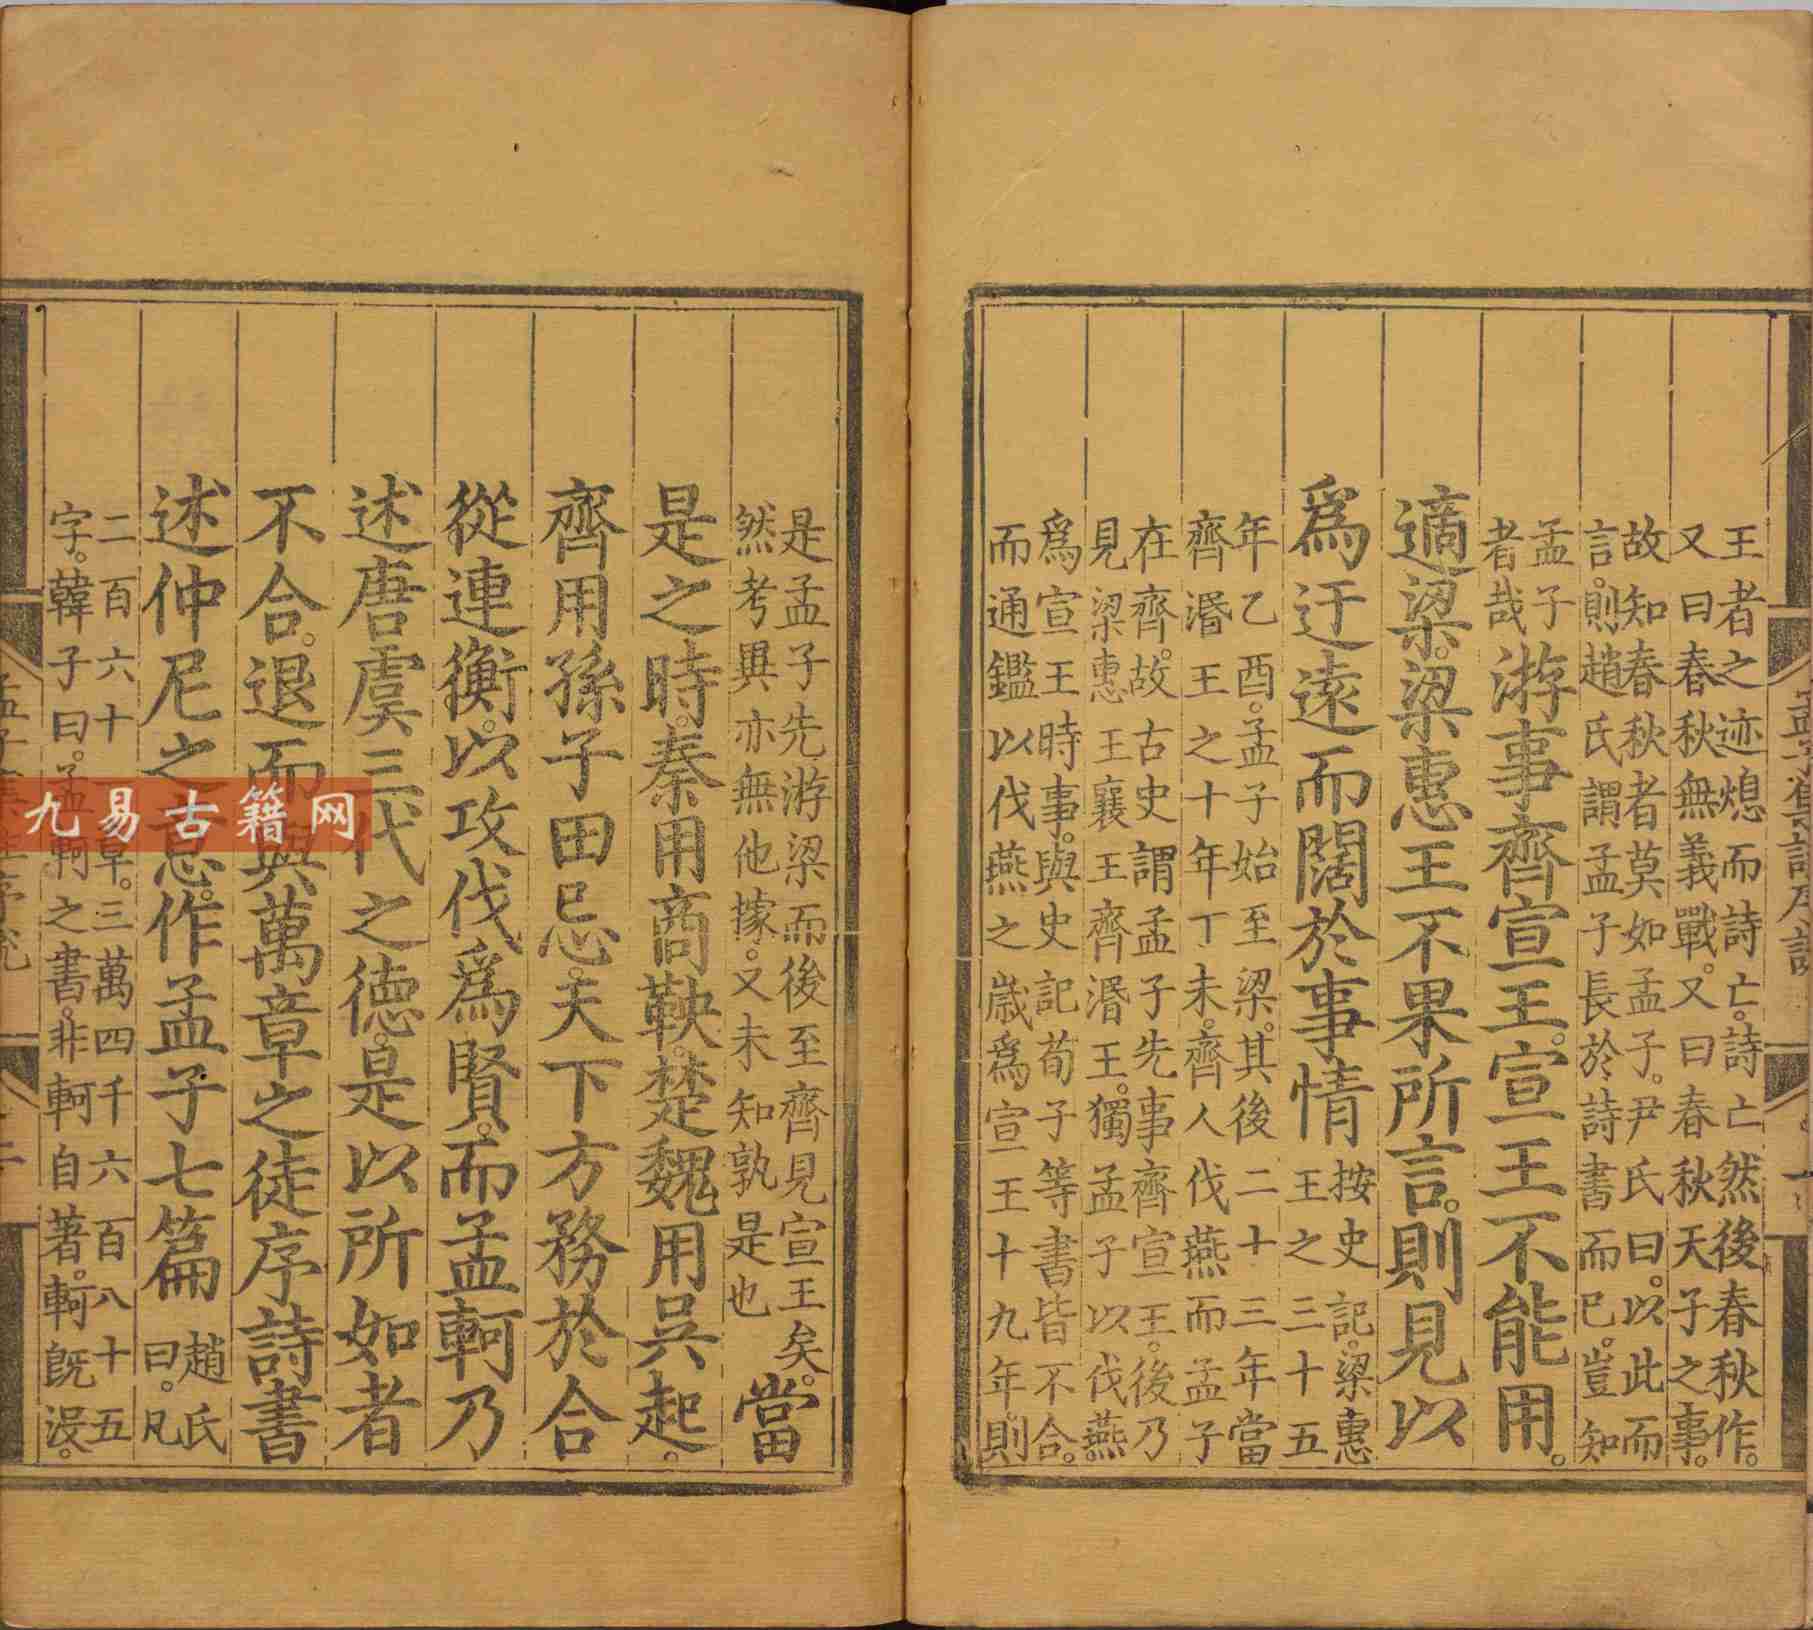 王者之迹熄而詩亡。詩亡然後春秋作。
又曰春秋無義戰。又曰春秋天子之事。
故知春秋者莫如孟子。尹氏曰。以此而
言。則趙氏謂孟子長於詩書而已。豈知
孟子
者哉
游事齊宣王。宣王不能用。
適梁。梁惠王不果所言。則見以
爲迂遠而闊於事情
按史記。梁惠
王之三十五
年乙酉。孟子始至梁。其後二十三年當
齊湣王之十年丁未。齊人伐燕而孟子
在齊。故古史謂孟子先事齊宣王。後乃
見梁惠王襄王齊湣王。獨孟子以伐燕。
爲宣王時事。與史記荀子等書皆不合。
而通鑑以伐燕之歲爲宣王十九年則
是孟子先游梁而後至齊見宣王矣。
然考異亦無他據。又未知孰是也
當
是之時。秦用商鞅。楚魏用吳起。
齊用孫子田忌。天下方務於合
從連衡。以攻伐爲賢。而孟軻乃
述唐虞三代之德。是以所如者
不合。退而與萬章之徒序詩書
述仲尼之意。作孟子七篇
趙氏
曰。凡
二百六十一章。三萬四千六百八十五
字。韓子曰。孟軻之書。非軻自著。軻旣沒。
九易古籍网